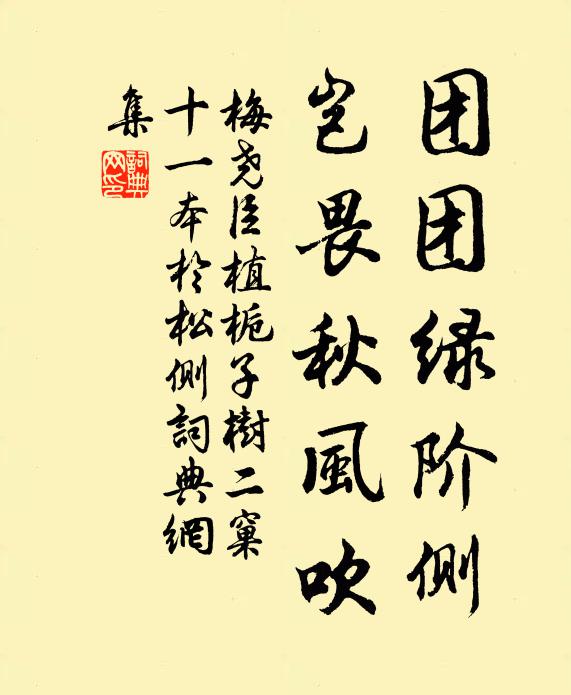 团团绿阶侧
岂畏秋風吹
梅尧臣植栀子樹二窠
十一本於松侧詞典網
集
詞典
网印